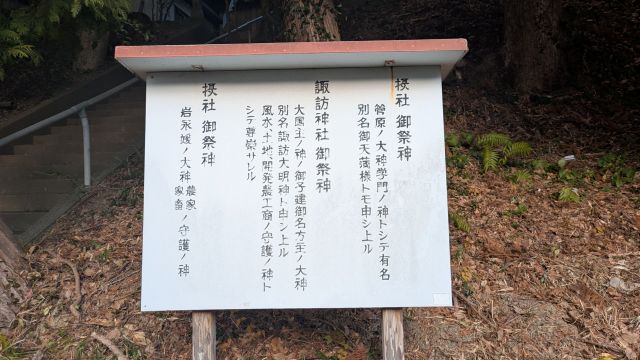 挨社 御祭神
菅原ノ大神学門ノ神トシテ有名
別名御天満様トモ申シ上ル
諏訪神社 御祭神
大国主ノ神ノ御子建御名方主ノ大神
別名諏訪大明神ト申シ上ル
風水、土地、開発農工商ノ守護ノ神ト
シテ尊崇サレル
挨社 御祭神
岩永媛ノ大神 農家
家畜 ノ守護ノ神